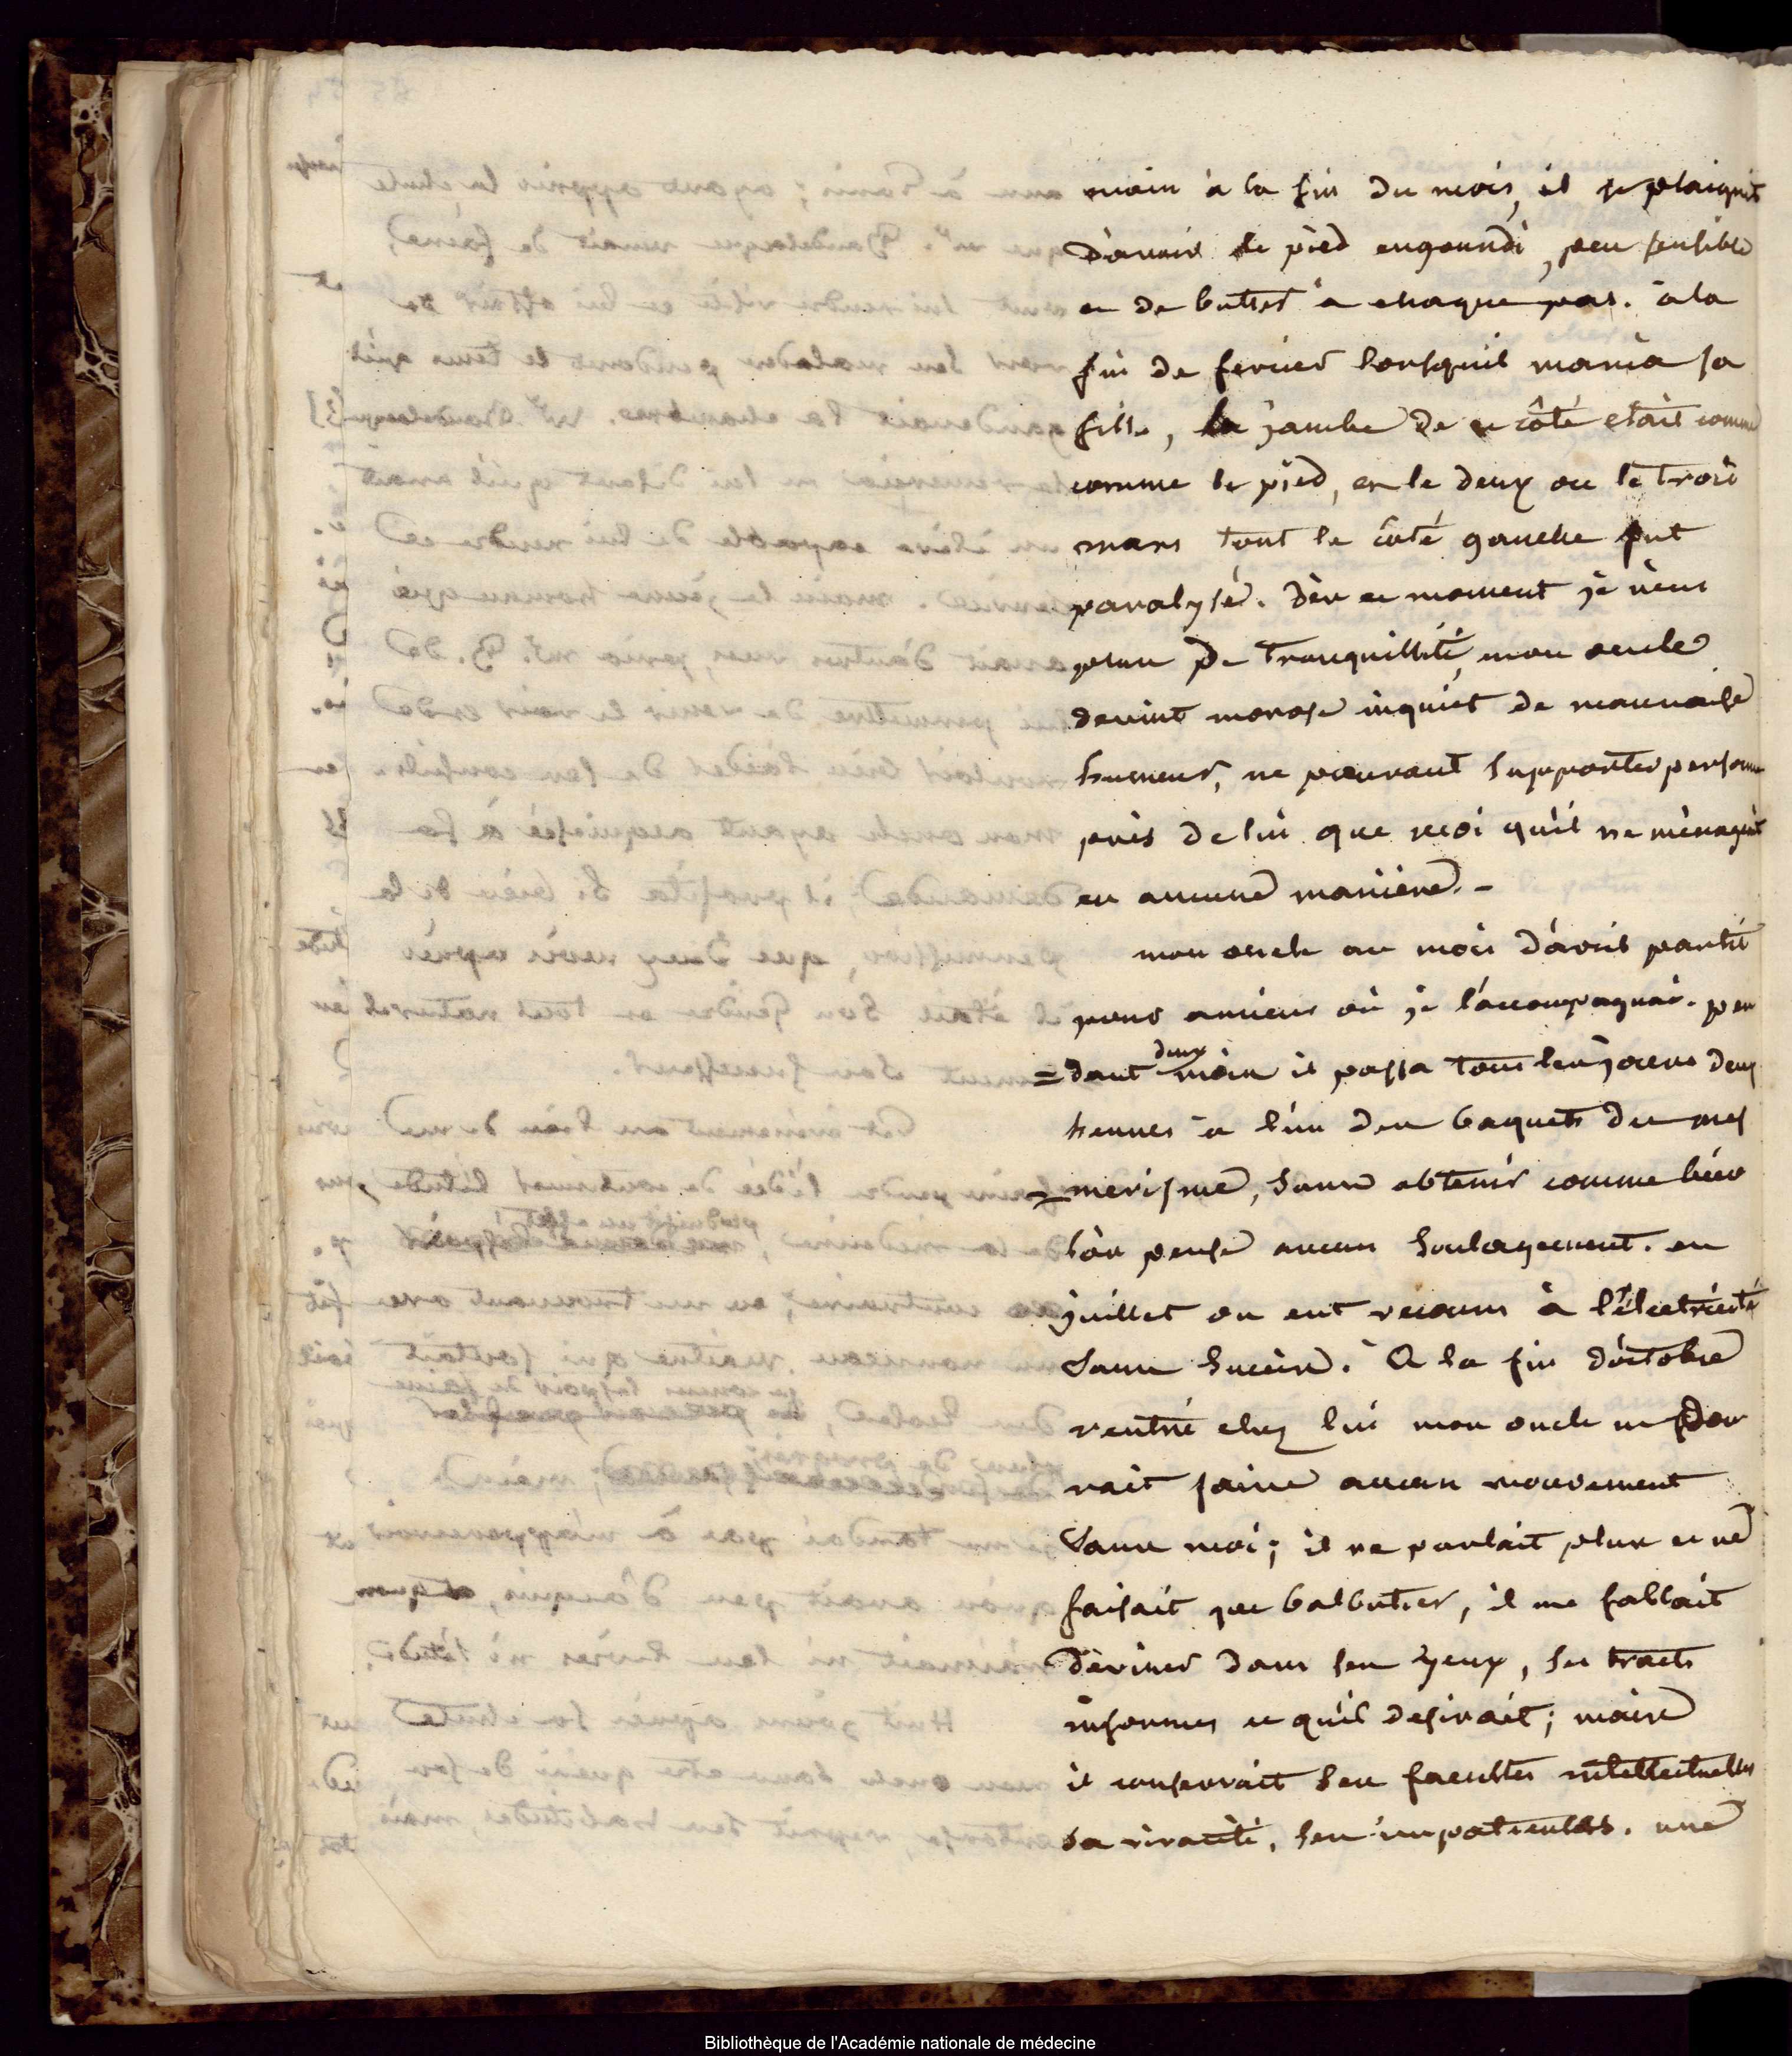 main à la fin du mois, il se plaignit
d'avoir le pied engourdi, peu sensible
et de butter a chaque pas. à la
fin de fevrier lorsqu'il maria sa
fille, la jambe de ce côté etait comme
comme le pied, et le deux ou le trois
mars tout le côté gauche fut
paralysé. dès ce moment je n'eus
plus de tranquillité, mon oncle
devint morose inquiet de mauvaise
humeur, ne pouvant supporter personne
près de lui que moi qu'il ne ménageait
en aucune manière. -
mon oncle au mois d'avril partit
pour amiens où je l'accompagnai. pen
= dant deux mois il passa tous les jours deux
heures à l'un des baquets du mes
= merisme, sans obtenir comme bien
l'on pense aucun soulagement. en
juillet on eut recours à l'électricité
sans succès. A la fin d'octobre
rentré chez lui mon oncle ne pou
vait faire aucun mouvement
sans moi; il ne parlait plus et ne
faisait que balbutier, il me fallait
deviner dans ses yeux, ses traits
informes ce qu'il desirait; mais
il conservait ses facultés intellectuelles
sa vivacité, ses impatiences. une
Bibliothèque de l'Académie nationale de médecine